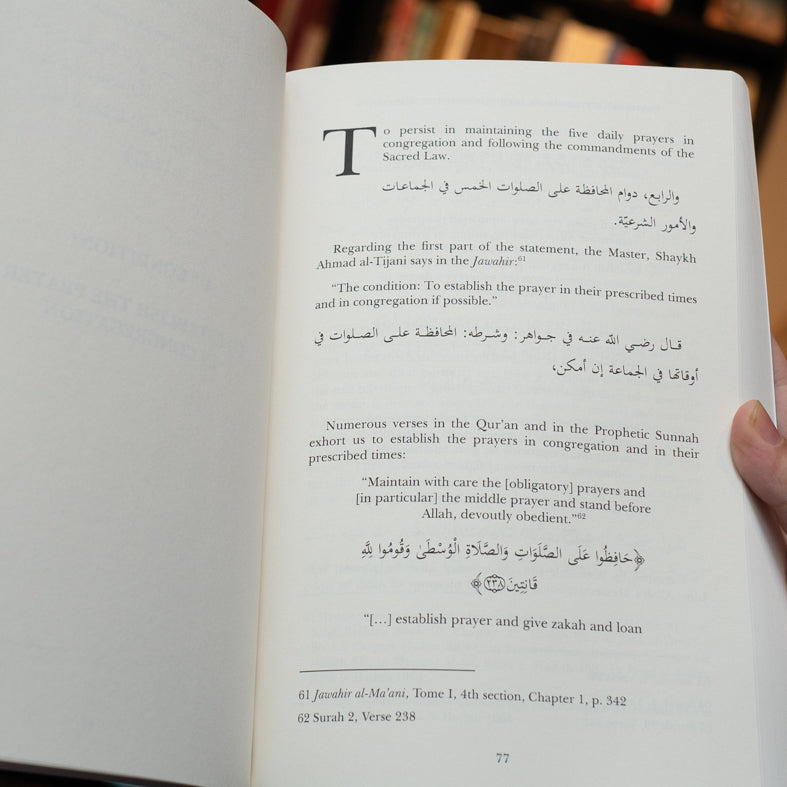 To persist in maintaining the five daily prayers in
congregation and following the commandments of the
Sacred Law.
والرابع، دوام المحافظة على الصلوات الخمس في الجماعات
والأمور الشرعيّة.
Regarding the first part of the statement, the Master, Shaykh
Ahmad al-Tijani says in the Jawahir:61
“The condition: To establish the prayer in their prescribed times
and in congregation if possible.”
قال رضي الله عنه في جواهر: وشرطه: المحافظة على الصلوات في
أوقاتها في الجماعة إن أمكن،
Numerous verses in the Qur'an and in the Prophetic Sunnah
exhort us to establish the prayers in congregation and in their
prescribed times:
“Maintain with care the [obligatory] prayers and
[in particular] the middle prayer and stand before
Allah, devoutly obedient.”62
﴿حَافِظُوا عَلَى الصَّلَوَاتِ وَالصَّلَاةِ الْوُسْطَىٰ وَقُومُوا لِلَّهِ
قَانِتِينَ ٢٣٨﴾
“[…] establish prayer and give zakah and loan
61 Jawahir al-Ma'ani, Tome I, 4th section, Chapter 1, p. 342
62 Surah 2, Verse 238
77